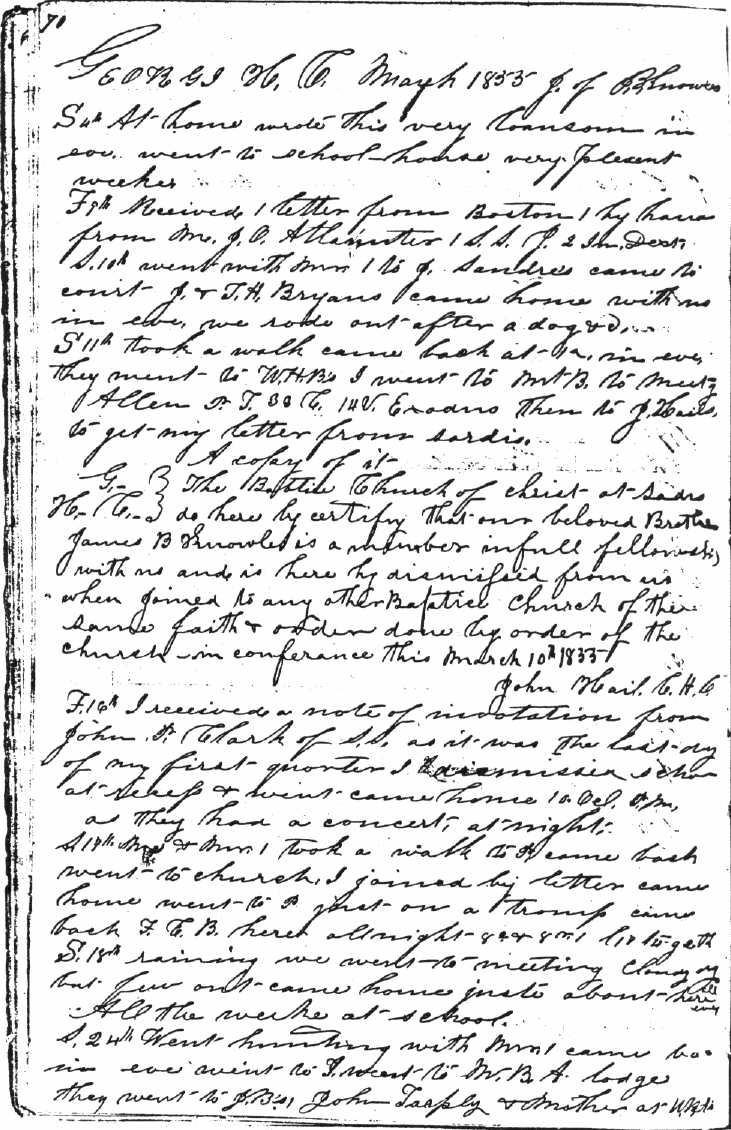 70
GEORGI H. C. March 1855 J. of B. Knowles
S 4th At home wrote this very lonsom in
eve. went to school-house very plesent
weeke
F 9th Received 1 letter from Boston 1 by hand
from Mr. J. C. 1 S. S. J. 2 In. Dect.
S. 10th went with Mr. 1 to J. Sandres came to
court J. & T. H. Bryans came home with us
in eve, we rode out after a dog &c.
S 11th took a walk came back at in eve,
they went to W.H.B's I went to Mt B. to meetg
Allen P. T. 33 C. 14V. Exodus then to J. Hails,
to get my letter from sardis.
A copy of it
G.- } The Babtist Church of christ at Sadis
H.- C.- } do here by certify that our beloved Brother
James B Knowles is a member in full fellowship
with us and is here by dismissed from us
when joined to any other Baptist Church of the
same faith & order done by order of the
church in conferance this March 10th 1855
John Hail. C. H. C
F. 16th I received a note of invatation from
John P. Clark of S.S. as it was the last dy
of my first quarter I dismissed scho
at recess & went came home 10 Ocl. P.M,
as they had a concert, at night.
S 17th & Mr. 1 took a walk to came back
went to church, I joined by letter came
home went to just on a tromp came
back F. C. B. here all night to geth
S. 18th raining we went to meeting Cloudy dy
but few out came home juste about here
eve
All the weeke at school.
S. 24th Went hunting with came ba
in eve went to I went to Mr. B. A. lodge
they went to J.B's, John Tarply & Mother at